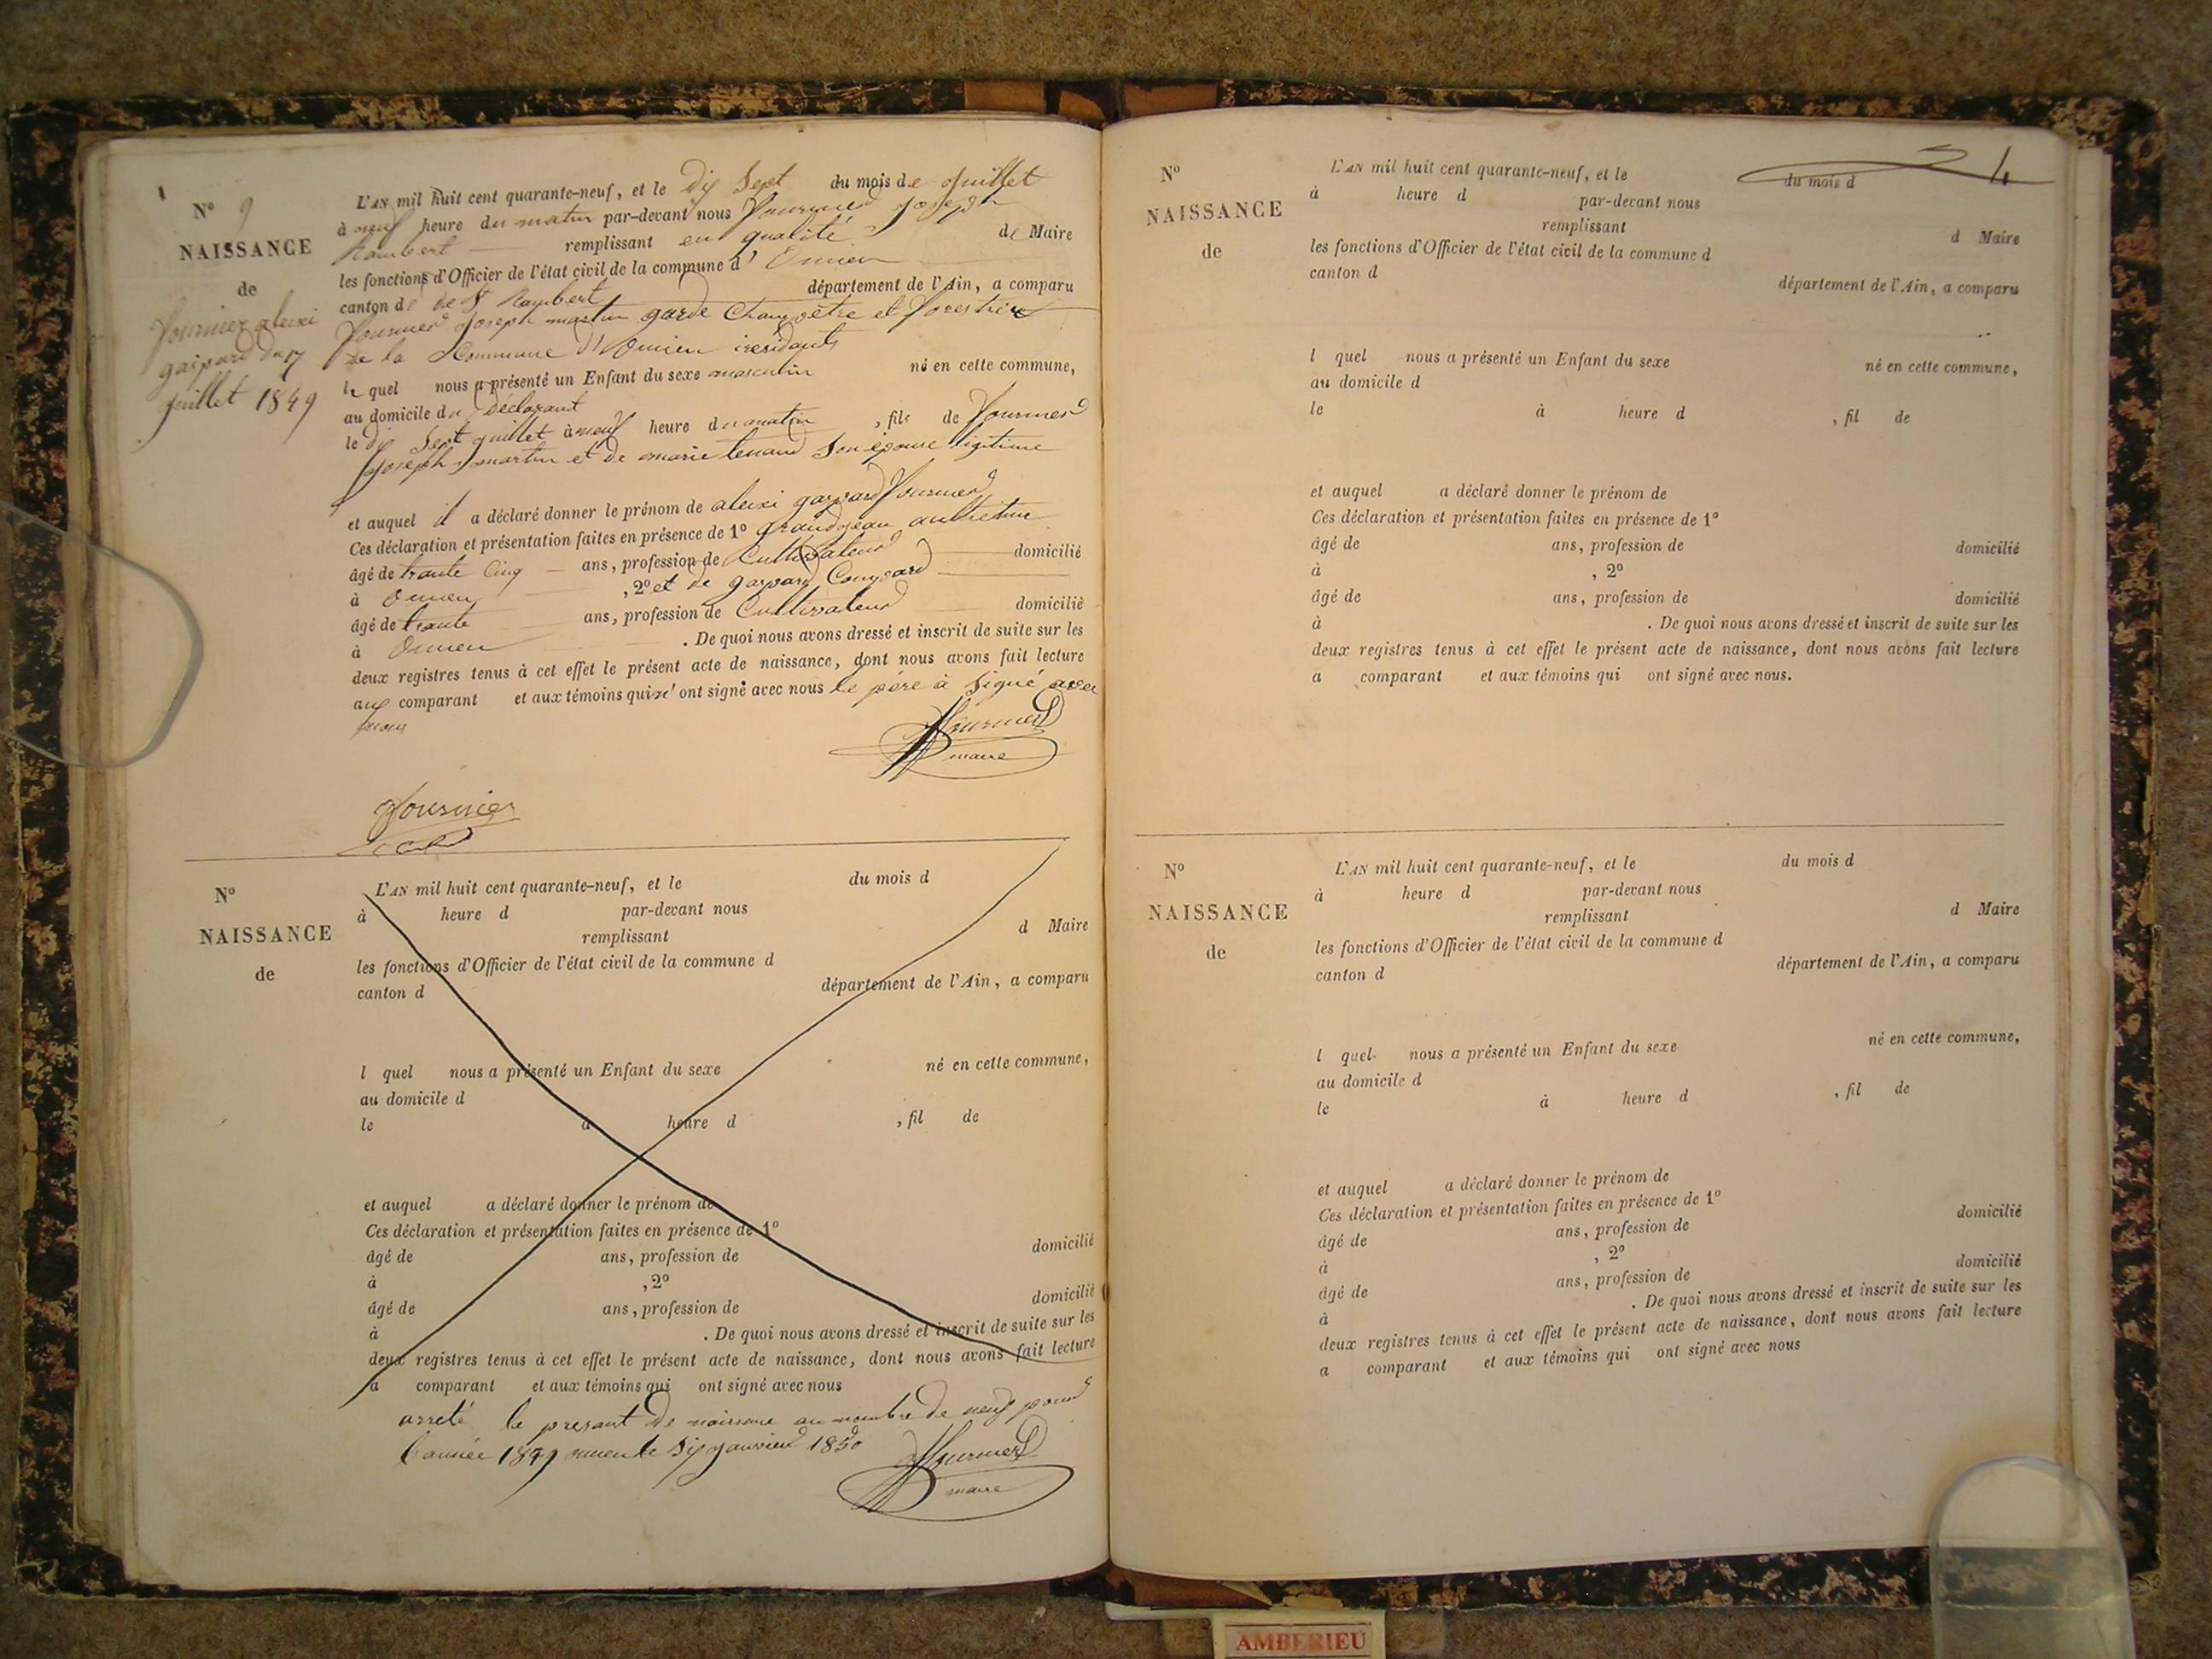 N° 9
NAISSANCE
de
Fournier aleixi
gaspard du 17
juillet 1849
L'AN mil huit cent quarante-neuf, et le dix Sept du mois de Juillet
à neuf heure du matin par-devant nous Fournier Joseph
Rambert remplissant en qualité de Maire
les fonctions d'Officier de l'état civil de la commune d'Oncieu
canton de de St Rambert département de l'Ain, a comparu
Fournier Joseph martin garde Champêtre et forestier
de la Commune d'Oncieu
le quel nous a présenté un Enfant du sexe masculin né en cette commune,
au domicile du déclarant
le dix Sept juillet à neuf heure du matin, fils de Fournier
Joseph martin et de marie tenand Son épouse légitime
et auquel il a déclaré donner le prénom de aleixi gaspard Fournier
Ces déclaration et présentation faites en présence de 1° grandjean anthelme
âgé de trante Cinq ans, profession de Cultivateur domicilié
à Oncieu, 2° et de gaspard
âgé de trante ans, profession de Cultivateur domicilié
à Oncieu. De quoi nous avons dressé et inscrit de suite sur les
deux registres tenus à cet effet le présent acte de naissance, dont nous avons fait lecture
aux comparant et aux témoins qui n' ont signé avec nous le père à Signé avec
nous
Fournier
maire
Fournier
N°
NAISSANCE
de
L'AN mil huit cent quarante-neuf, et le du mois d
à heure d par-devant nous
remplissant d Maire
les fonctions d'Officier de l'état civil de la commune d
canton d département de l'Ain, a comparu
l quel nous a présenté un Enfant du sexe né en cette commune,
au domicile d
le à heure d , fil de
et auquel a déclaré donner le prénom de
Ces déclaration et présentation faites en présence de 1°
âgé de ans, profession de domicilié
à , 2°
âgé de ans, profession de domicilié
à . De quoi nous avons dressé et inscrit de suite sur les
deux registres tenus à cet effet le présent acte de naissance, dont nous avons fait lecture
a comparant et aux témoins qui ont signé avec nous
arreté le presant de naissance au nombre de neuf pour
l'année 1849 oncieu le Six janvier 1850
Fournier
maire
4
N°
NAISSANCE
de
L'AN mil huit cent quarante-neuf, et le du mois d
à heure d par-devant nous
remplissant d Maire
les fonctions d'Officier de l'état civil de la commune d
canton d département de l'Ain, a comparu
l quel nous a présenté un Enfant du sexe né en cette commune,
au domicile d
le à heure d , fil de
et auquel a déclaré donner le prénom de
Ces déclaration et présentation faites en présence de 1°
âgé de ans, profession de domicilié
à , 2°
âgé de ans, profession de domicilié
à . De quoi nous avons dressé et inscrit de suite sur les
deux registres tenus à cet effet le présent acte de naissance, dont nous avons fait lecture
a comparant et aux témoins qui ont signé avec nous.
N°
NAISSANCE
de
L'AN mil huit cent quarante-neuf, et le du mois d
à heure d par-devant nous
remplissant d Maire
les fonctions d'Officier de l'état civil de la commune d
canton d département de l'Ain, a comparu
l quel nous a présenté un Enfant du sexe né en cette commune,
au domicile d
le à heure d , fil de
et auquel a déclaré donner le prénom de
Ces déclaration et présentation faites en présence de 1°
âgé de ans, profession de domicilié
à , 2°
âgé de ans, profession de domicilié
à . De quoi nous avons dressé et inscrit de suite sur les
deux registres tenus à cet effet le présent acte de naissance, dont nous avons fait lecture
a comparant et aux témoins qui ont signé avec nous
AMBERIEU